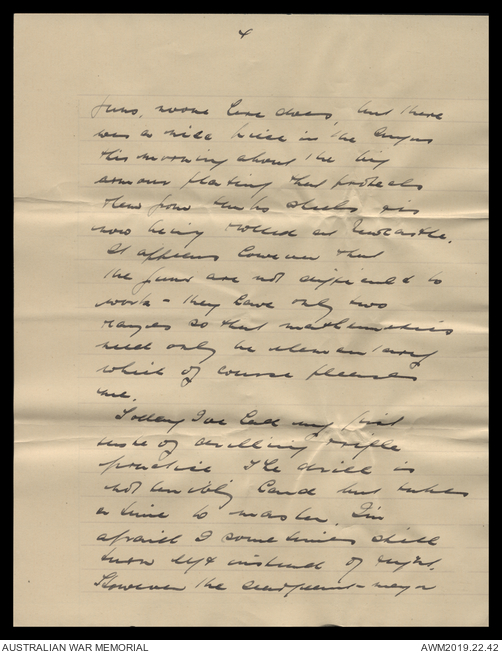 4
guns, noone here does, but there
was a nice piece in the Argus
this morning about the big
armour plating that protects
them from tanks shells is
now being rolled at Newcastle.
It appears however that
the guns are not difficult to
work - they have only two
ranges so that mathematics
need only be elementary
which of course pleases
me.
Today I've had my first
taste of drilling & rifle
practise. The drill is
not terribly hard but takes
a time to master. I'm
afraid I sometimes still
turn left instead of right.
However the seargeant-major
AUSTRALIAN WAR MEMORIAL
AWM2019.22.42